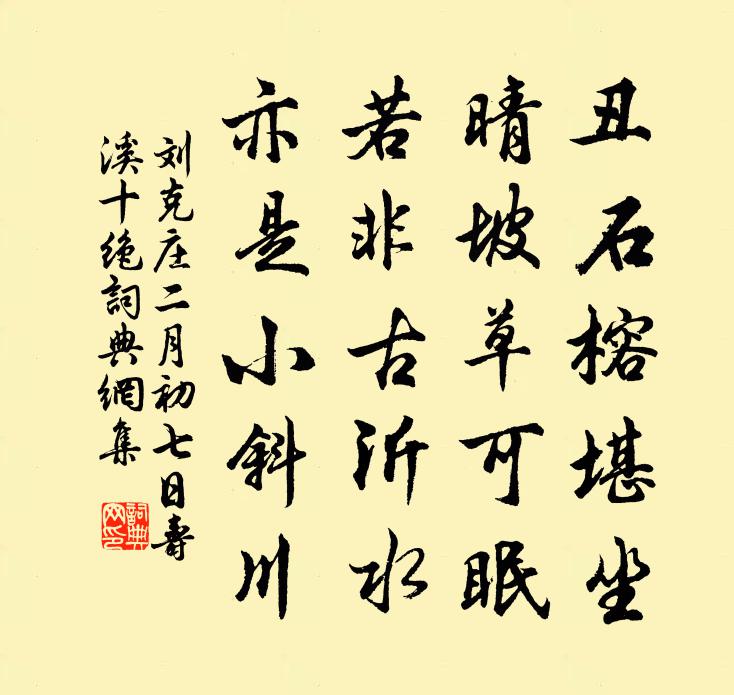 丑石榕堪坐
晴坡草可眠
若非古沂水
亦是小斜川
刘克庄二月初七日寿
溪十绝詞典網集
詞典网印